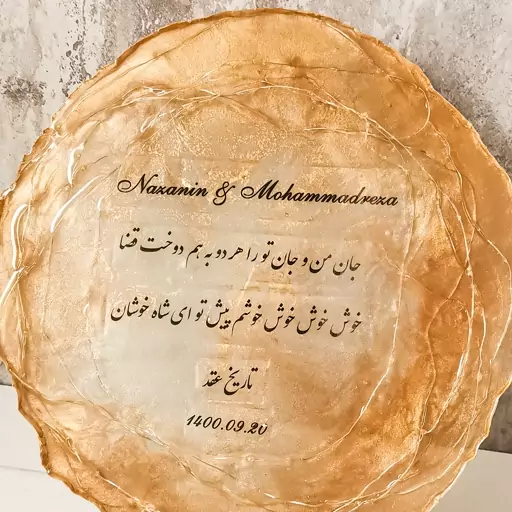 Nazanin & Mohammadreza
جان من و جان تو را هر دو به هم دوخت قضا
خوش خوش خوش خوش خوشم پیش تو ای شاه خوشان
تاریخ عقد
1400.09.20